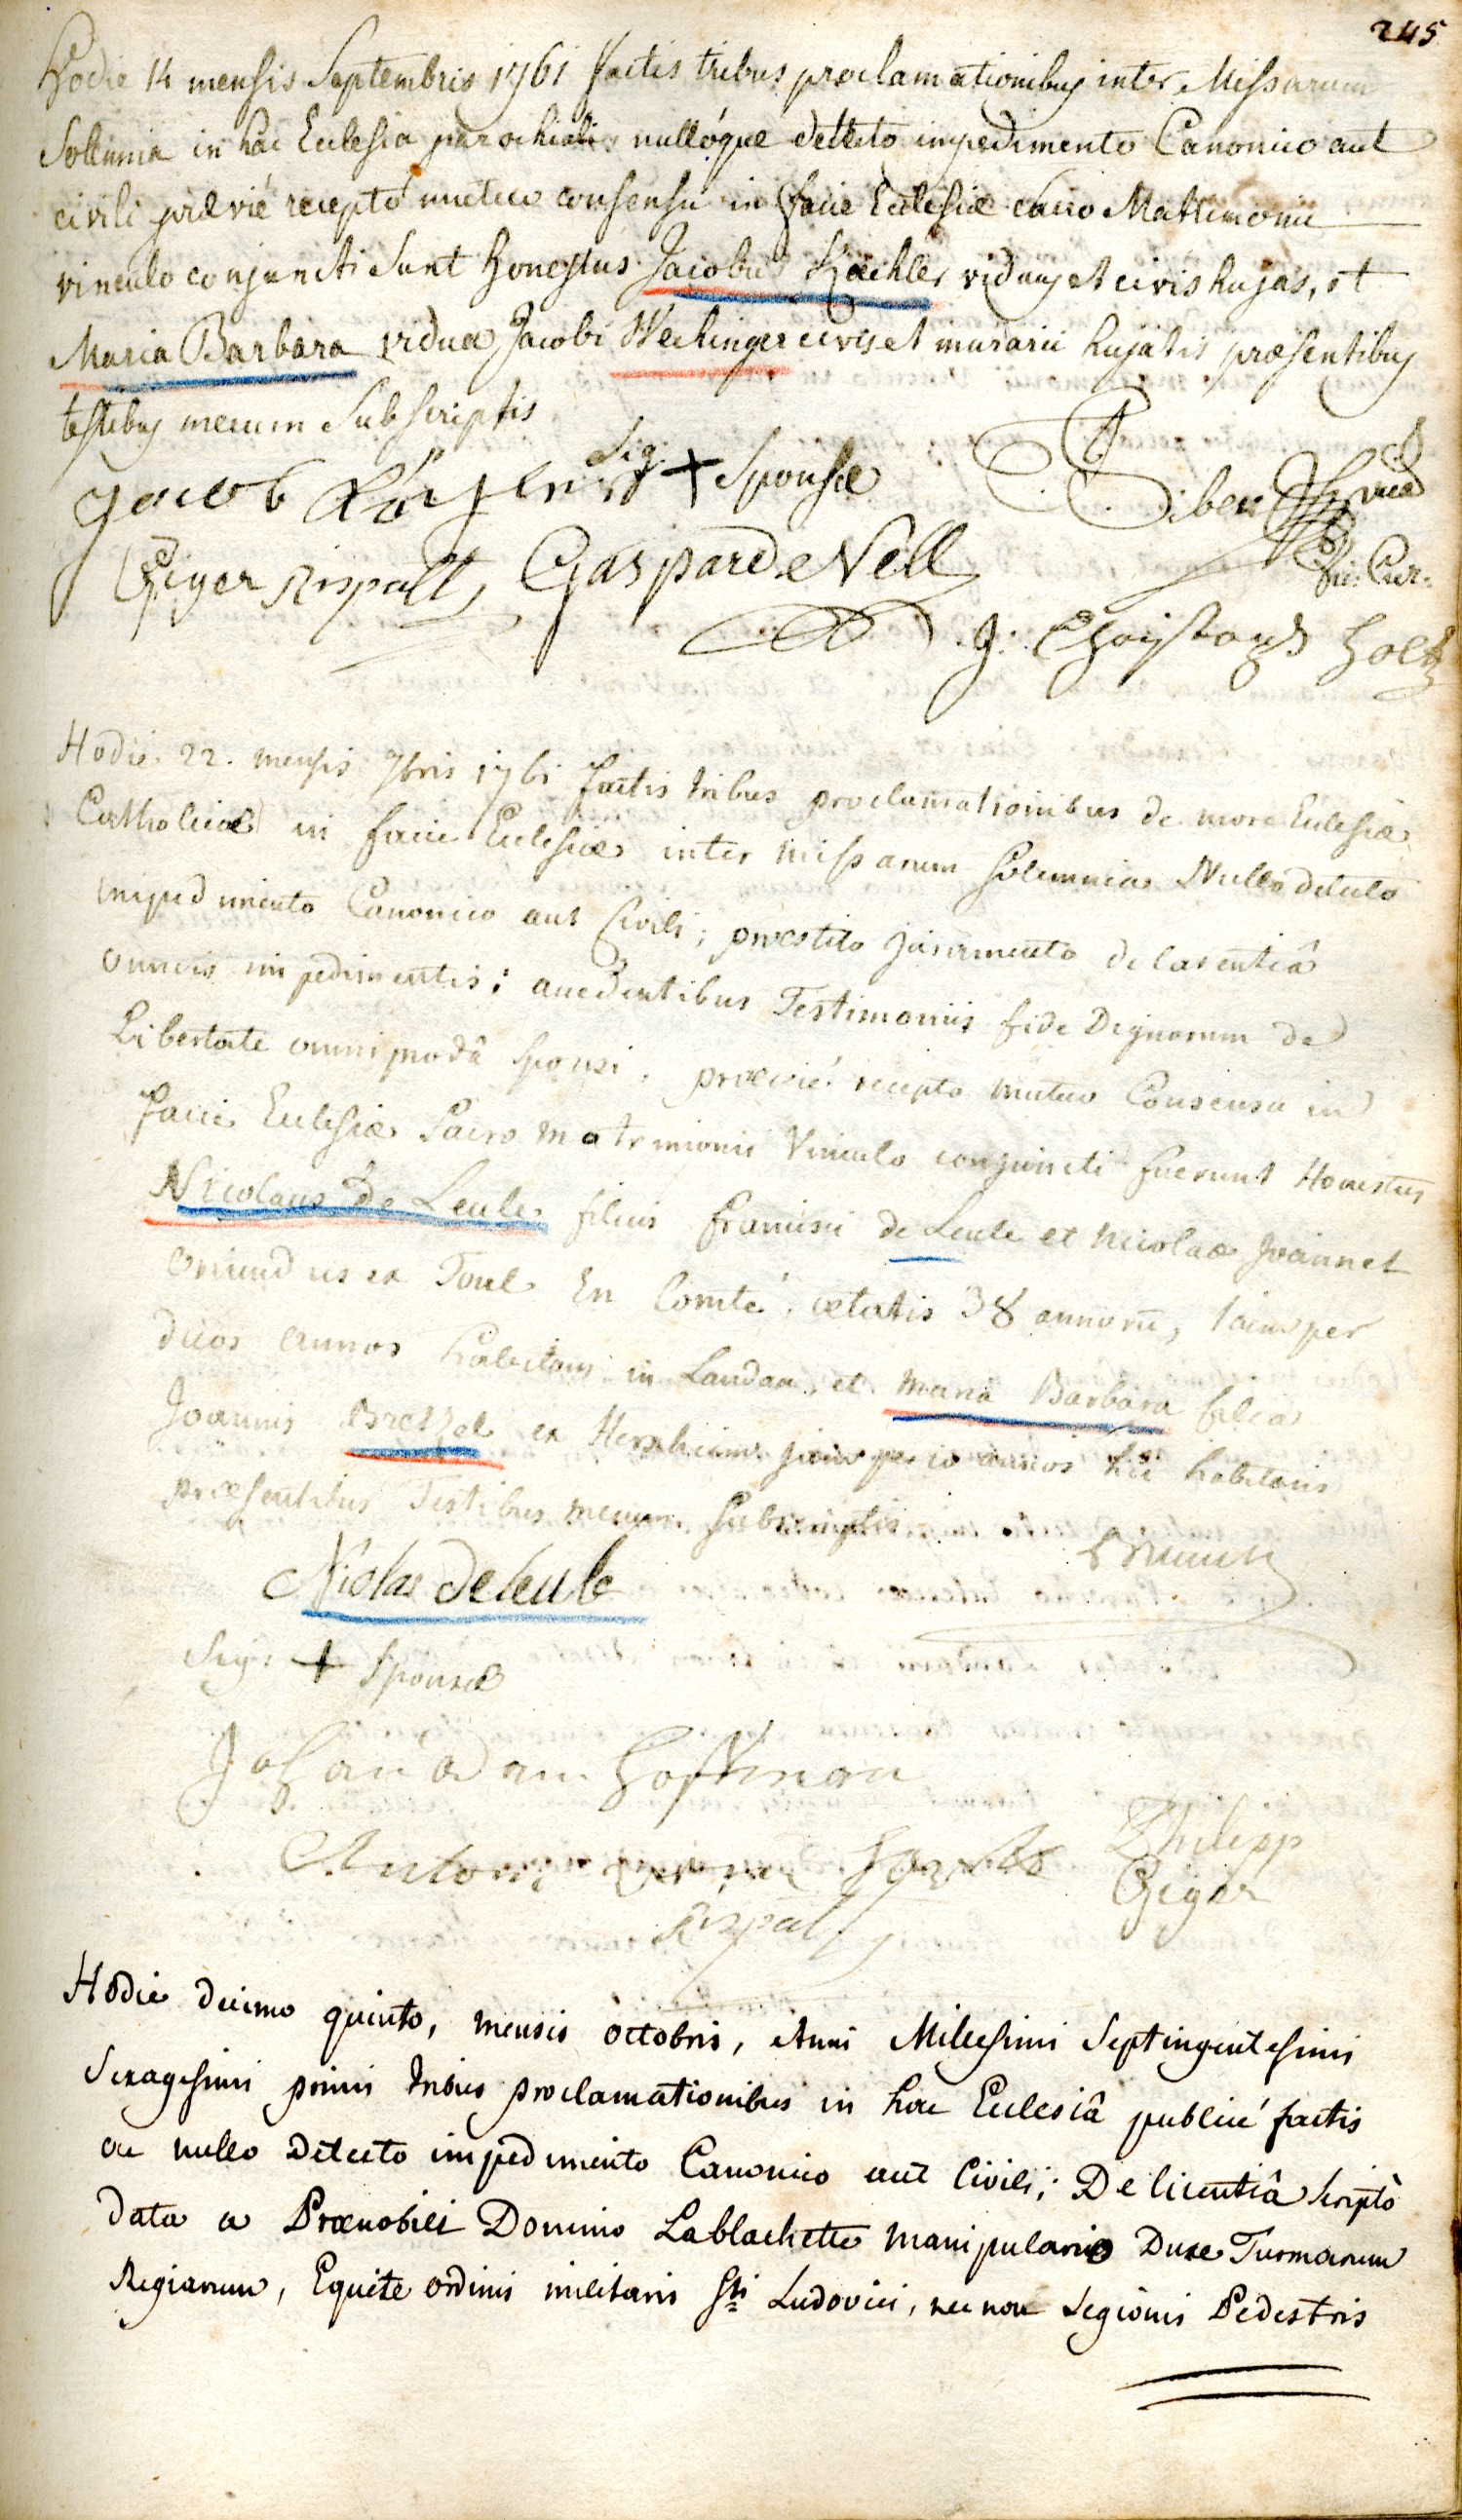 245
Hodie 14 mensis Septembris 1761 factis tribus proclamationibus inter Missarum
Sollemnia in hac Ecclesia parochiali nullóque detecto impedimento Canonico aut
civili prævié recepto mutuo consensu in facie Ecclesiæ sacro Matrimonii
vinculo conjuncti sunt honestus Jacobus Kœchler viduus et civis hujas, et
Maria Barbara vidua Jacobi Wechinger civis et murarii hujatis præsentibus
testibus mecum subscriptis
Jacob Sig: + Sponsæ
Giger Rispalt, Gaspard Nell
J: Christoph Holtz
Hodie 22. mensis 7bris 1761 factis tribus proclamationibus de more Ecclesiæ
Catholicæ in facie Ecclesiæ inter missarum solemnia Nullo detecto
impedimento Canonico aut Civili; præstito juramento de carentiâ
omnis impedimentis; accedentibus Testimoniis fide Dignorum de
Libertate omnimodâ sponsi, prævié recepto mutuo Consensu in
facie Ecclesiæ Sacro matrimonii Vinculo conjuncti fuerunt Honestus
Nicolaus De Leule filius francisci de Leule et Nicolaæ Joannet
oriundus ex Toul En Comté, ætatis 38 annorū, jam per
duos annos habitans in Landau, et Maria Barbara filia
Joannis Bretzel ex Herxheim jam per 10 annos hic habitans
præsentibus Testibus mecum subscriptis
Nicolas Deleule
Sig: + Sponsæ
Johan adam Hoffman
Philipp
Giger
Rispalt
Hodie decimo quinto, mensis octobris, Anni Millesimi Septingentesimi
Sexagesimi primi tribus proclamationibus in hac Ecclesiâ publicé factis
ac nullo Detecto impedimento Canonico aut Civili; De licentiâ scriptò
data a Prænobili Domino Lablachette Manipulario Duce Turmarum
Regiarum, Equite ordinis militaris Sti Ludovici, nec non Legionis Pedestris